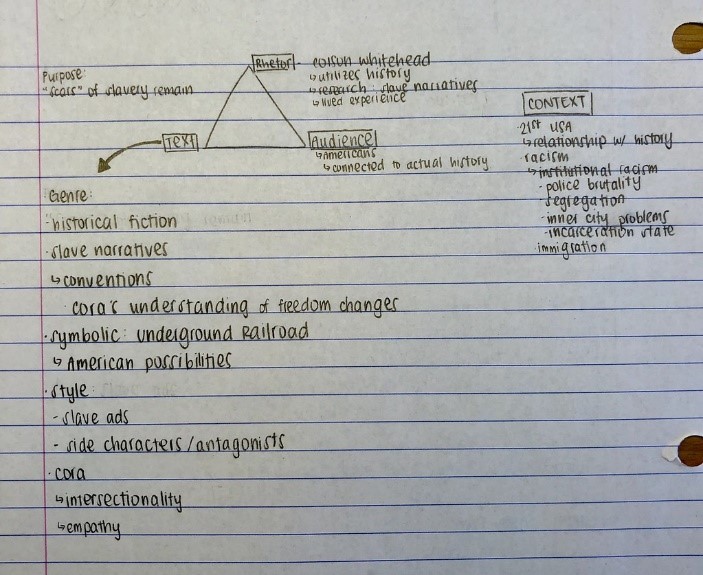 Purpose:
"scars" of slavery remain
Rhetor - colson whitehead
↳ utilizes history
↳ research: slave narratives
↳ lived experience
Text
Audience
↳ Americans
↳ connected to actual history
CONTEXT
·21st USA
↳ relationship w/ history
·racism
↳ institutional racism
- police brutality
- segregation
- inner city problems
- incarceration state
·immigration
Genre:
- historical fiction
· slave narratives
↳ conventions
cora's understanding of freedom changes
· symbolic: underground Railroad
↳ American possibilities
· style:
- slave ads
- side characters/antagonists
· cora
↳ intersectionality
↳ empathy